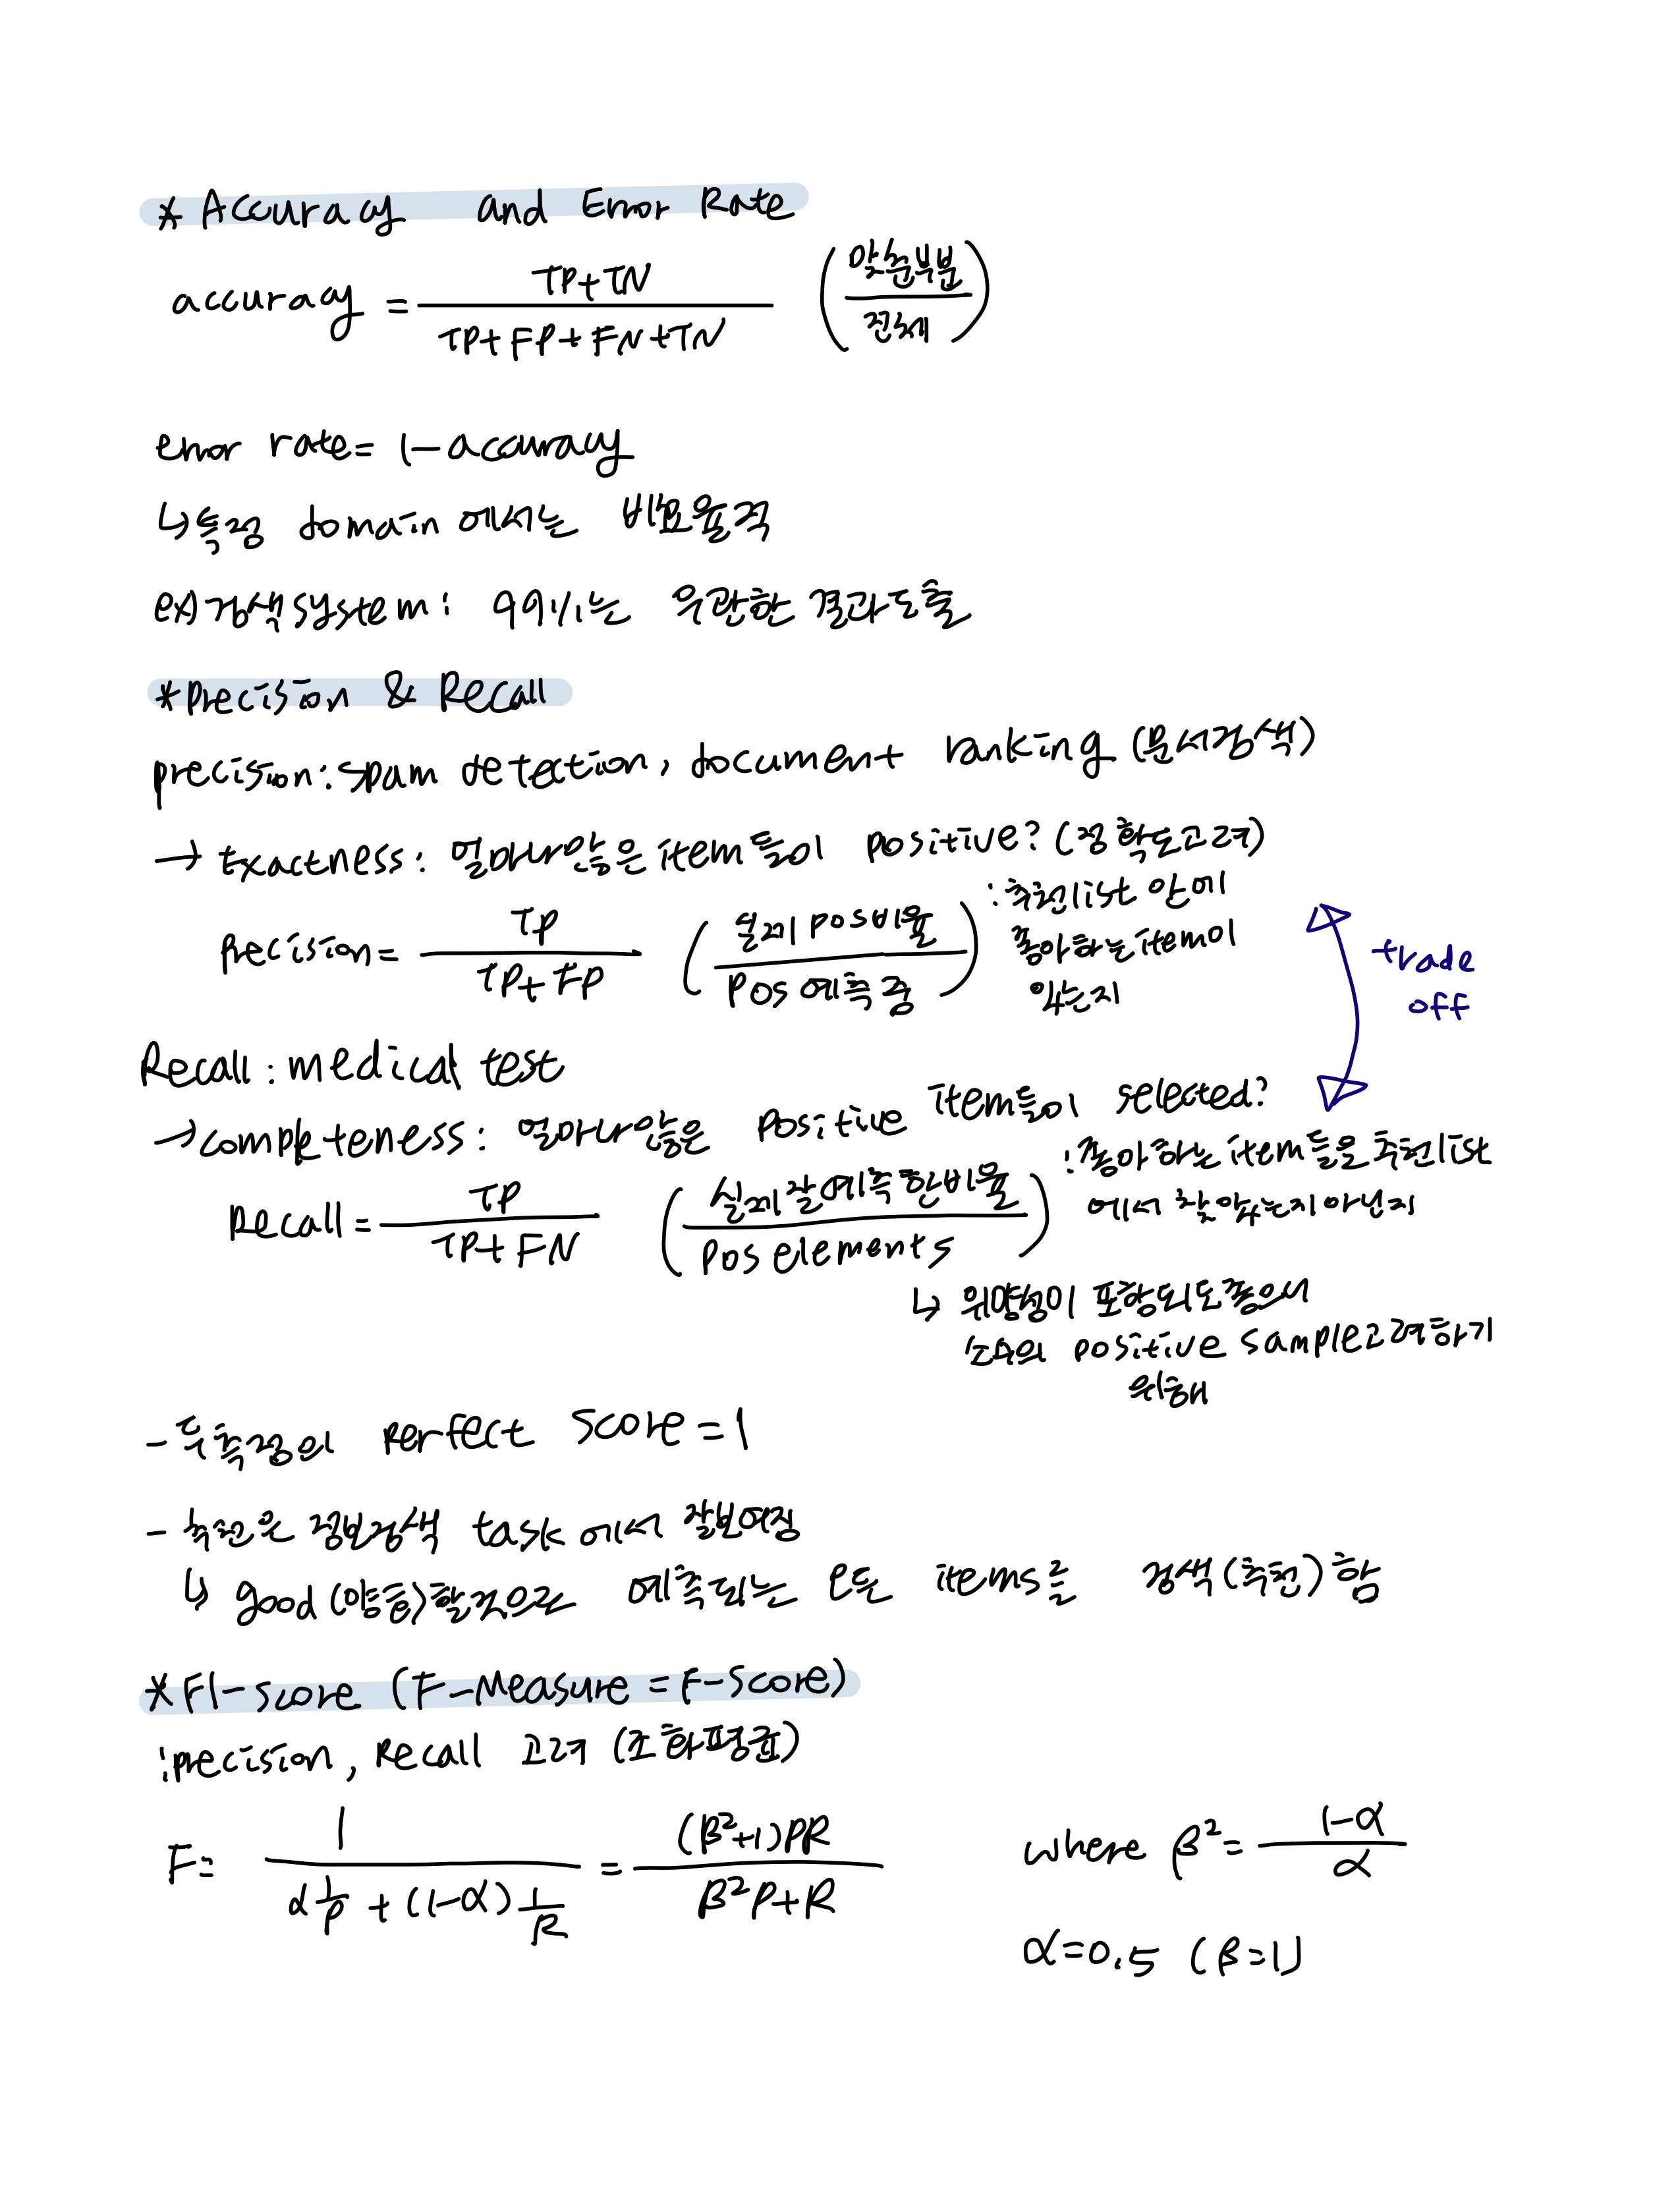 * Accuracy and Error Rate
accuracy = TP+TN / TP+FP+FN+TN (맞춘부분 / 전체)
error rate = 1-accuracy
↳특정 domain에서는 비효율적
ex)검색system: 99%는 무관한 결과도출
*precision & Recall
precision: spam detection, document ranking (문서검색)
→ Exactness: 얼마나많은item들이 positive? (정확도고려)
Precision= TP / TP+FP (실제pos비율 / pos 예측 중)
:추천list 안에
좋아하는item이
있는지
trade
off
Recall: medical test
→completeness: 얼마나많은 positive item들이 selected?
Recall= TP / TP+FN (실제잘예측한비율 / pos elements)
:좋아하는item들을추천list
에서 찾았는지아닌지
↳ 위양성이 포함되도좋으니
소수의 positive sample고려하기
위해
-두측정의 perfect score=1
-추천은 정보검색 task에서 잘보여짐
↳ good(이용등)할것으로 예측되는 모든 items를 검색(추천)함
*F1-score (F-Measure=F-score)
:precision, Recall 고려 (조화평균)
F= 1 / α 1/P + (1-α) 1/R = (β²+1)PR / β²P+R where β²= 1-α / α
α=0.5 (β=1)